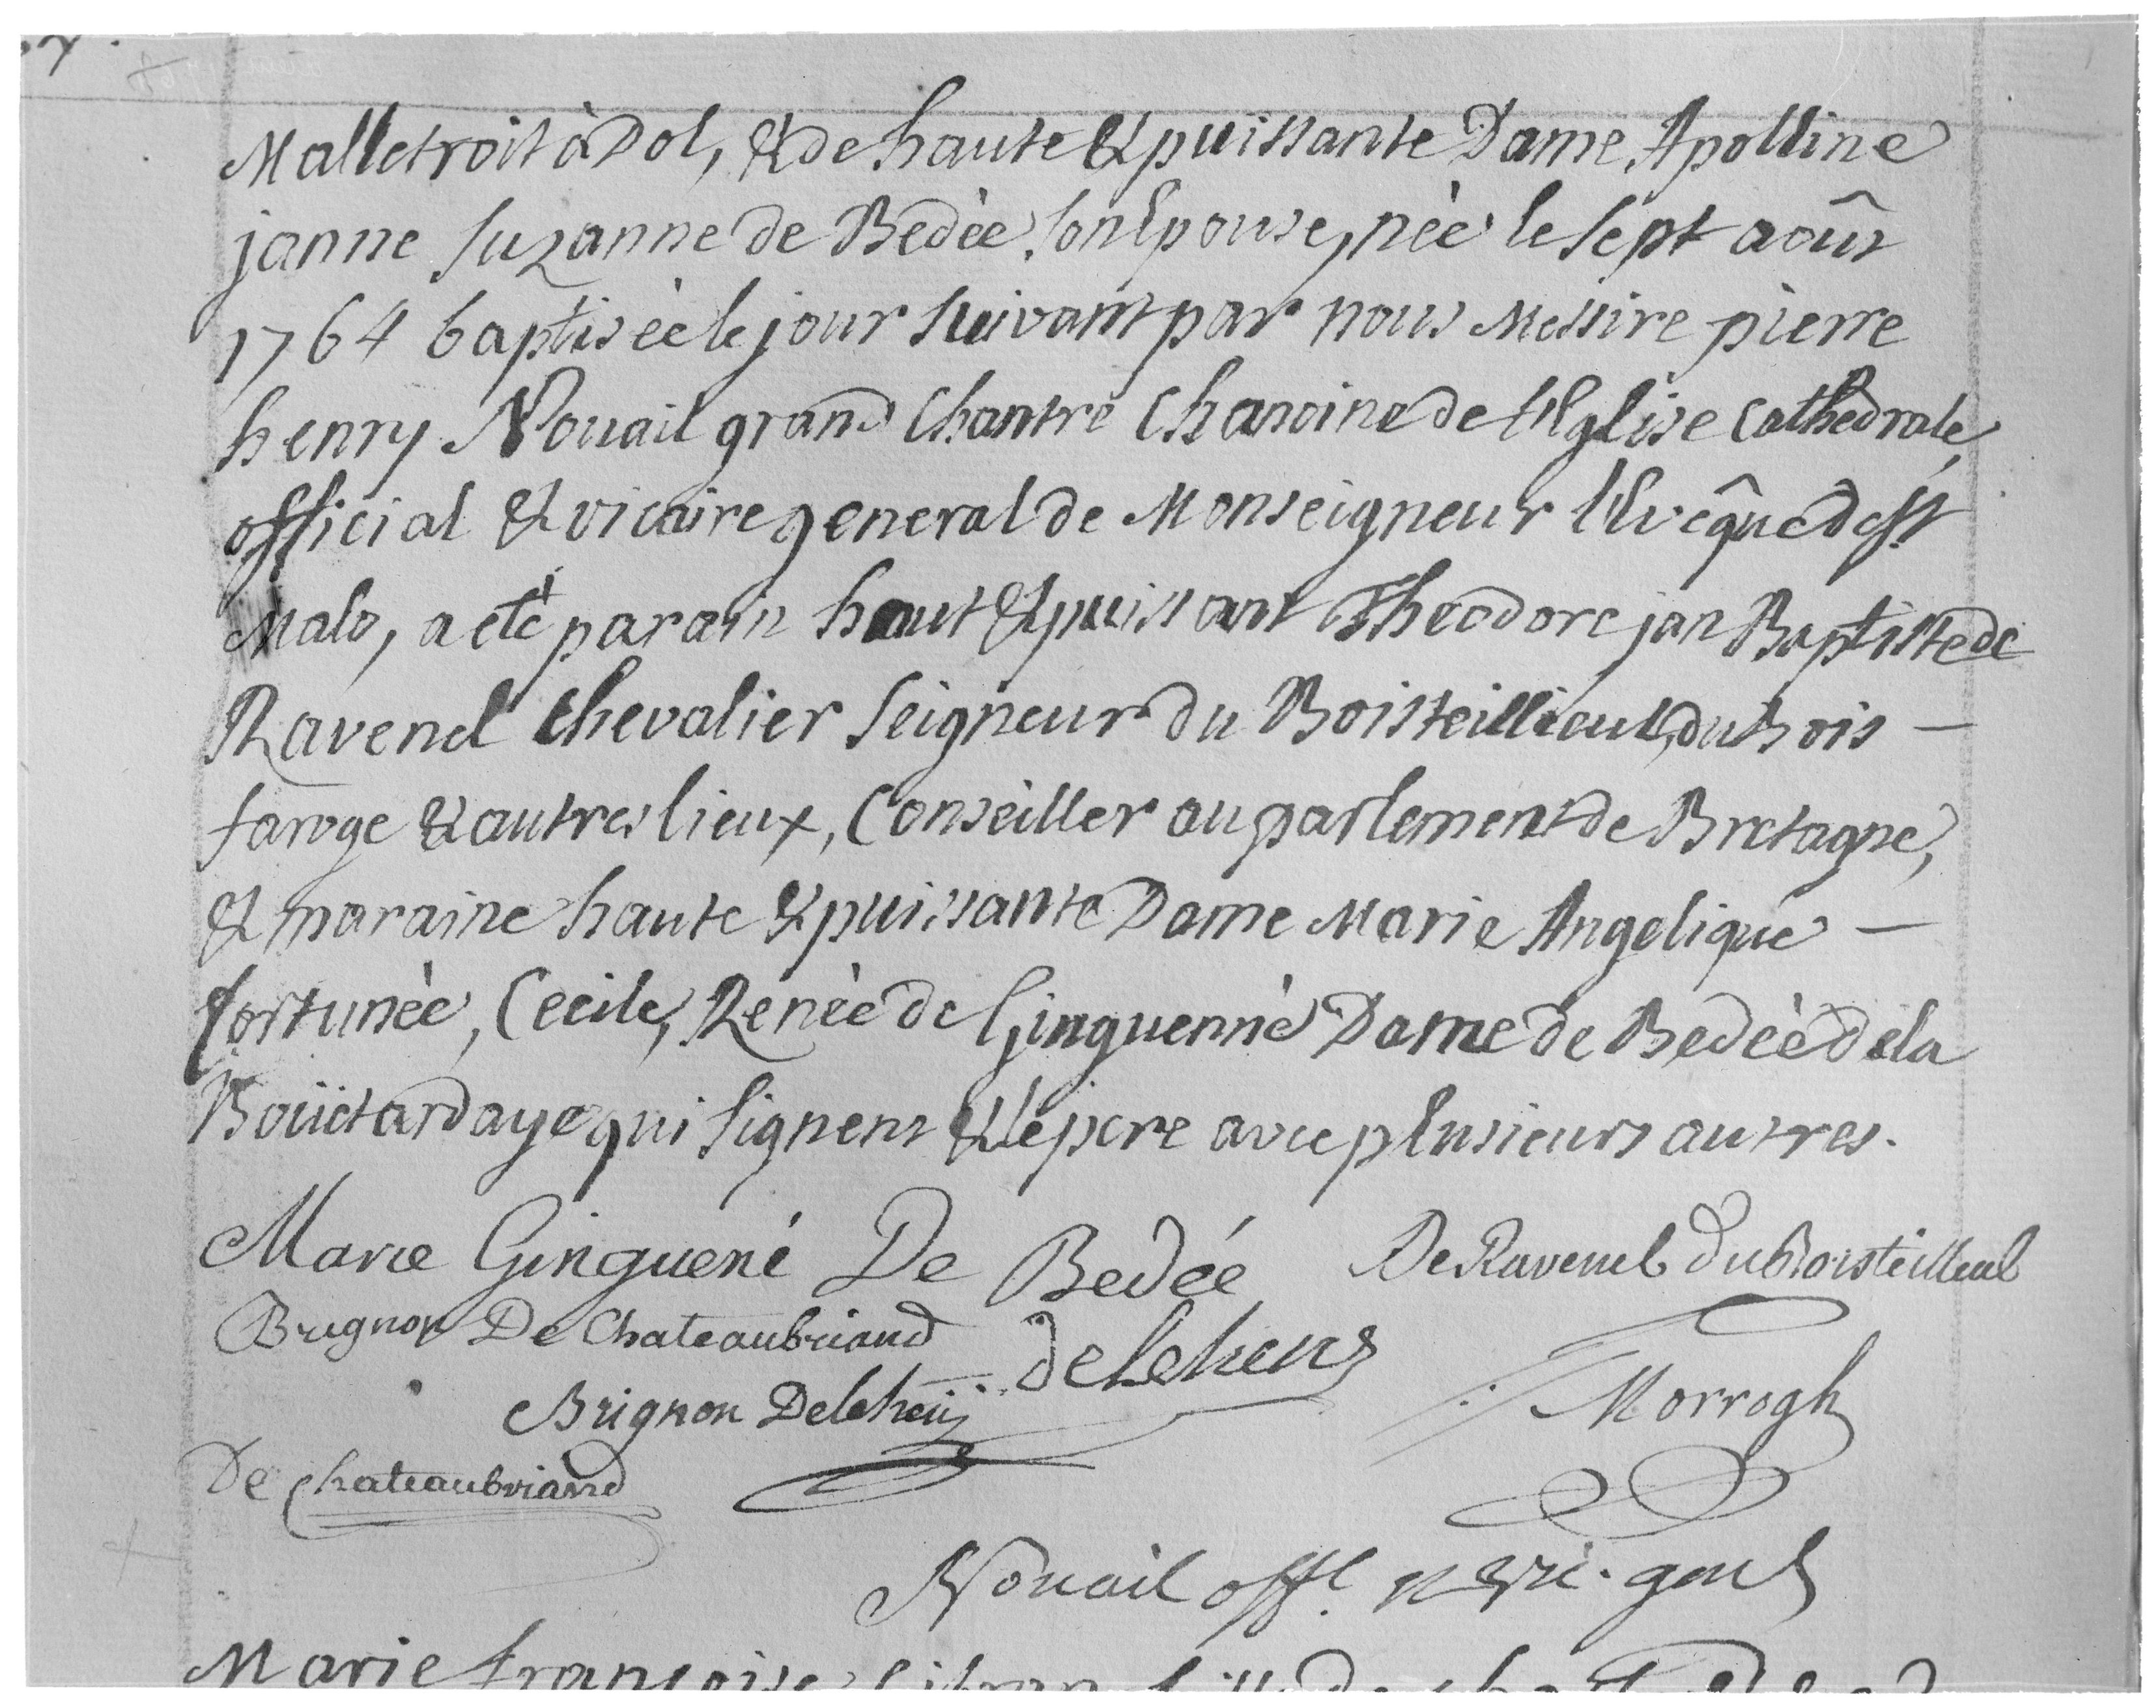 Malletroit à Dol, & de haute & puissante Dame Apolline
janne Suzanne de Bedèe, son Epouse, nèe le sept aoûst
1764 baptisèe le jour suivant par nous Messire pierre
henry Nouail grand Chantre Chanoine de l'Eglise Cathedrale,
official & vicaire general de Monseigneur l'Evêque de St
Malo, a eté parain haut & puissant Theodore jan Baptiste de
Ravenel Chevalier Seigneur du Boisteillieul, du Bois –
faroge & autres lieux, Conseiller au parlement de Bretagne,
& maraine haute & puissante Dame Marie Angelique –
fortunèe, Cecile, Renèe de Ginguennè Dame de Bedèe de la
Boüetardaye qui signent & le pere avec plusieurs autres.
Marie Ginguené De Bedée De Ravenel du Boisteilleul
Brignon De Chateaubriand deLehen
Brignon Delehen Morrogh
De Chateaubriand
Nouail offl. & vic. genl
Marie françoise